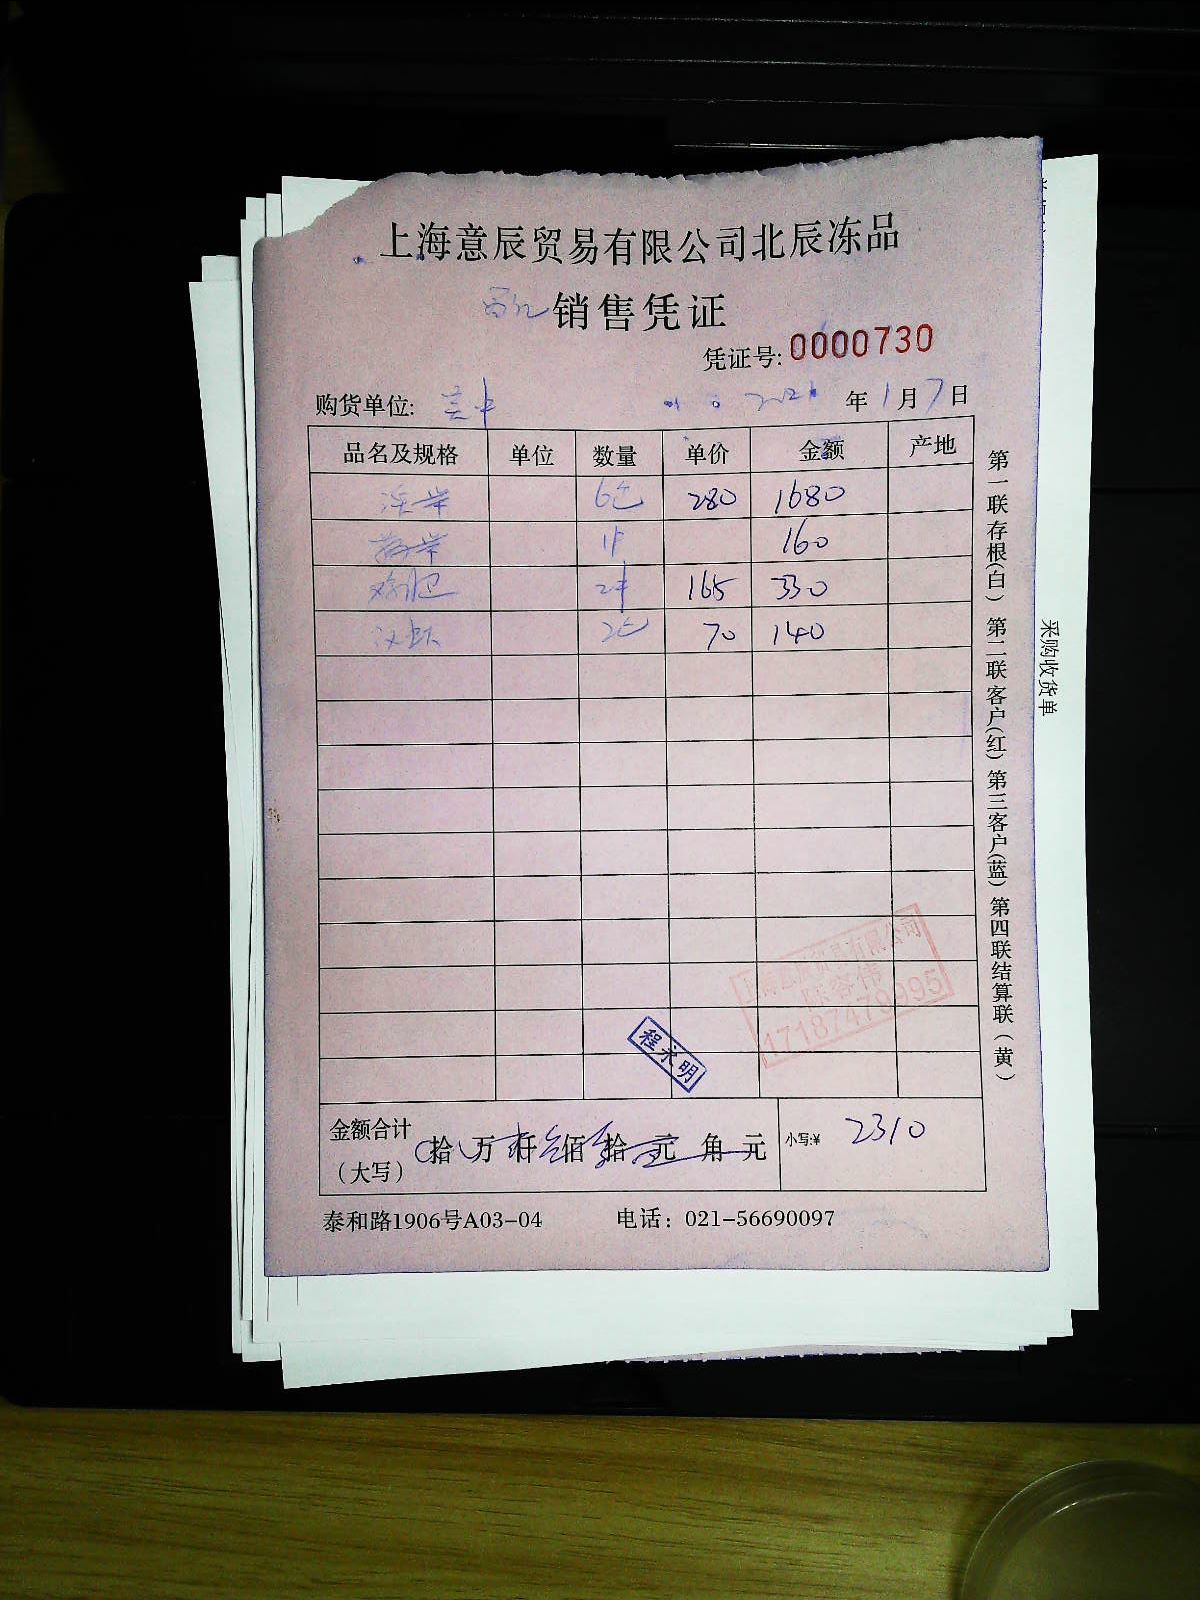 上海意辰贸易有限公司北辰冻品
销售凭证
凭证号: 0000730
购货单位:
2021 年 1 月 7 日
品名及规格 单位 数量 单价 金额 产地
6 280 1680
1 160
2 165 330
2 70 140
上海意辰贸易有限公司
17187479995
程永明
金额合计
(大写)
拾 万 仟 佰 拾 元 角 元
小写:¥ 2310
泰和路1906号A03-04 电话: 021-56690097
第一联存根(白) 第二联客户(红) 第三客户(蓝) 第四联结算联(黄)
采购收货单